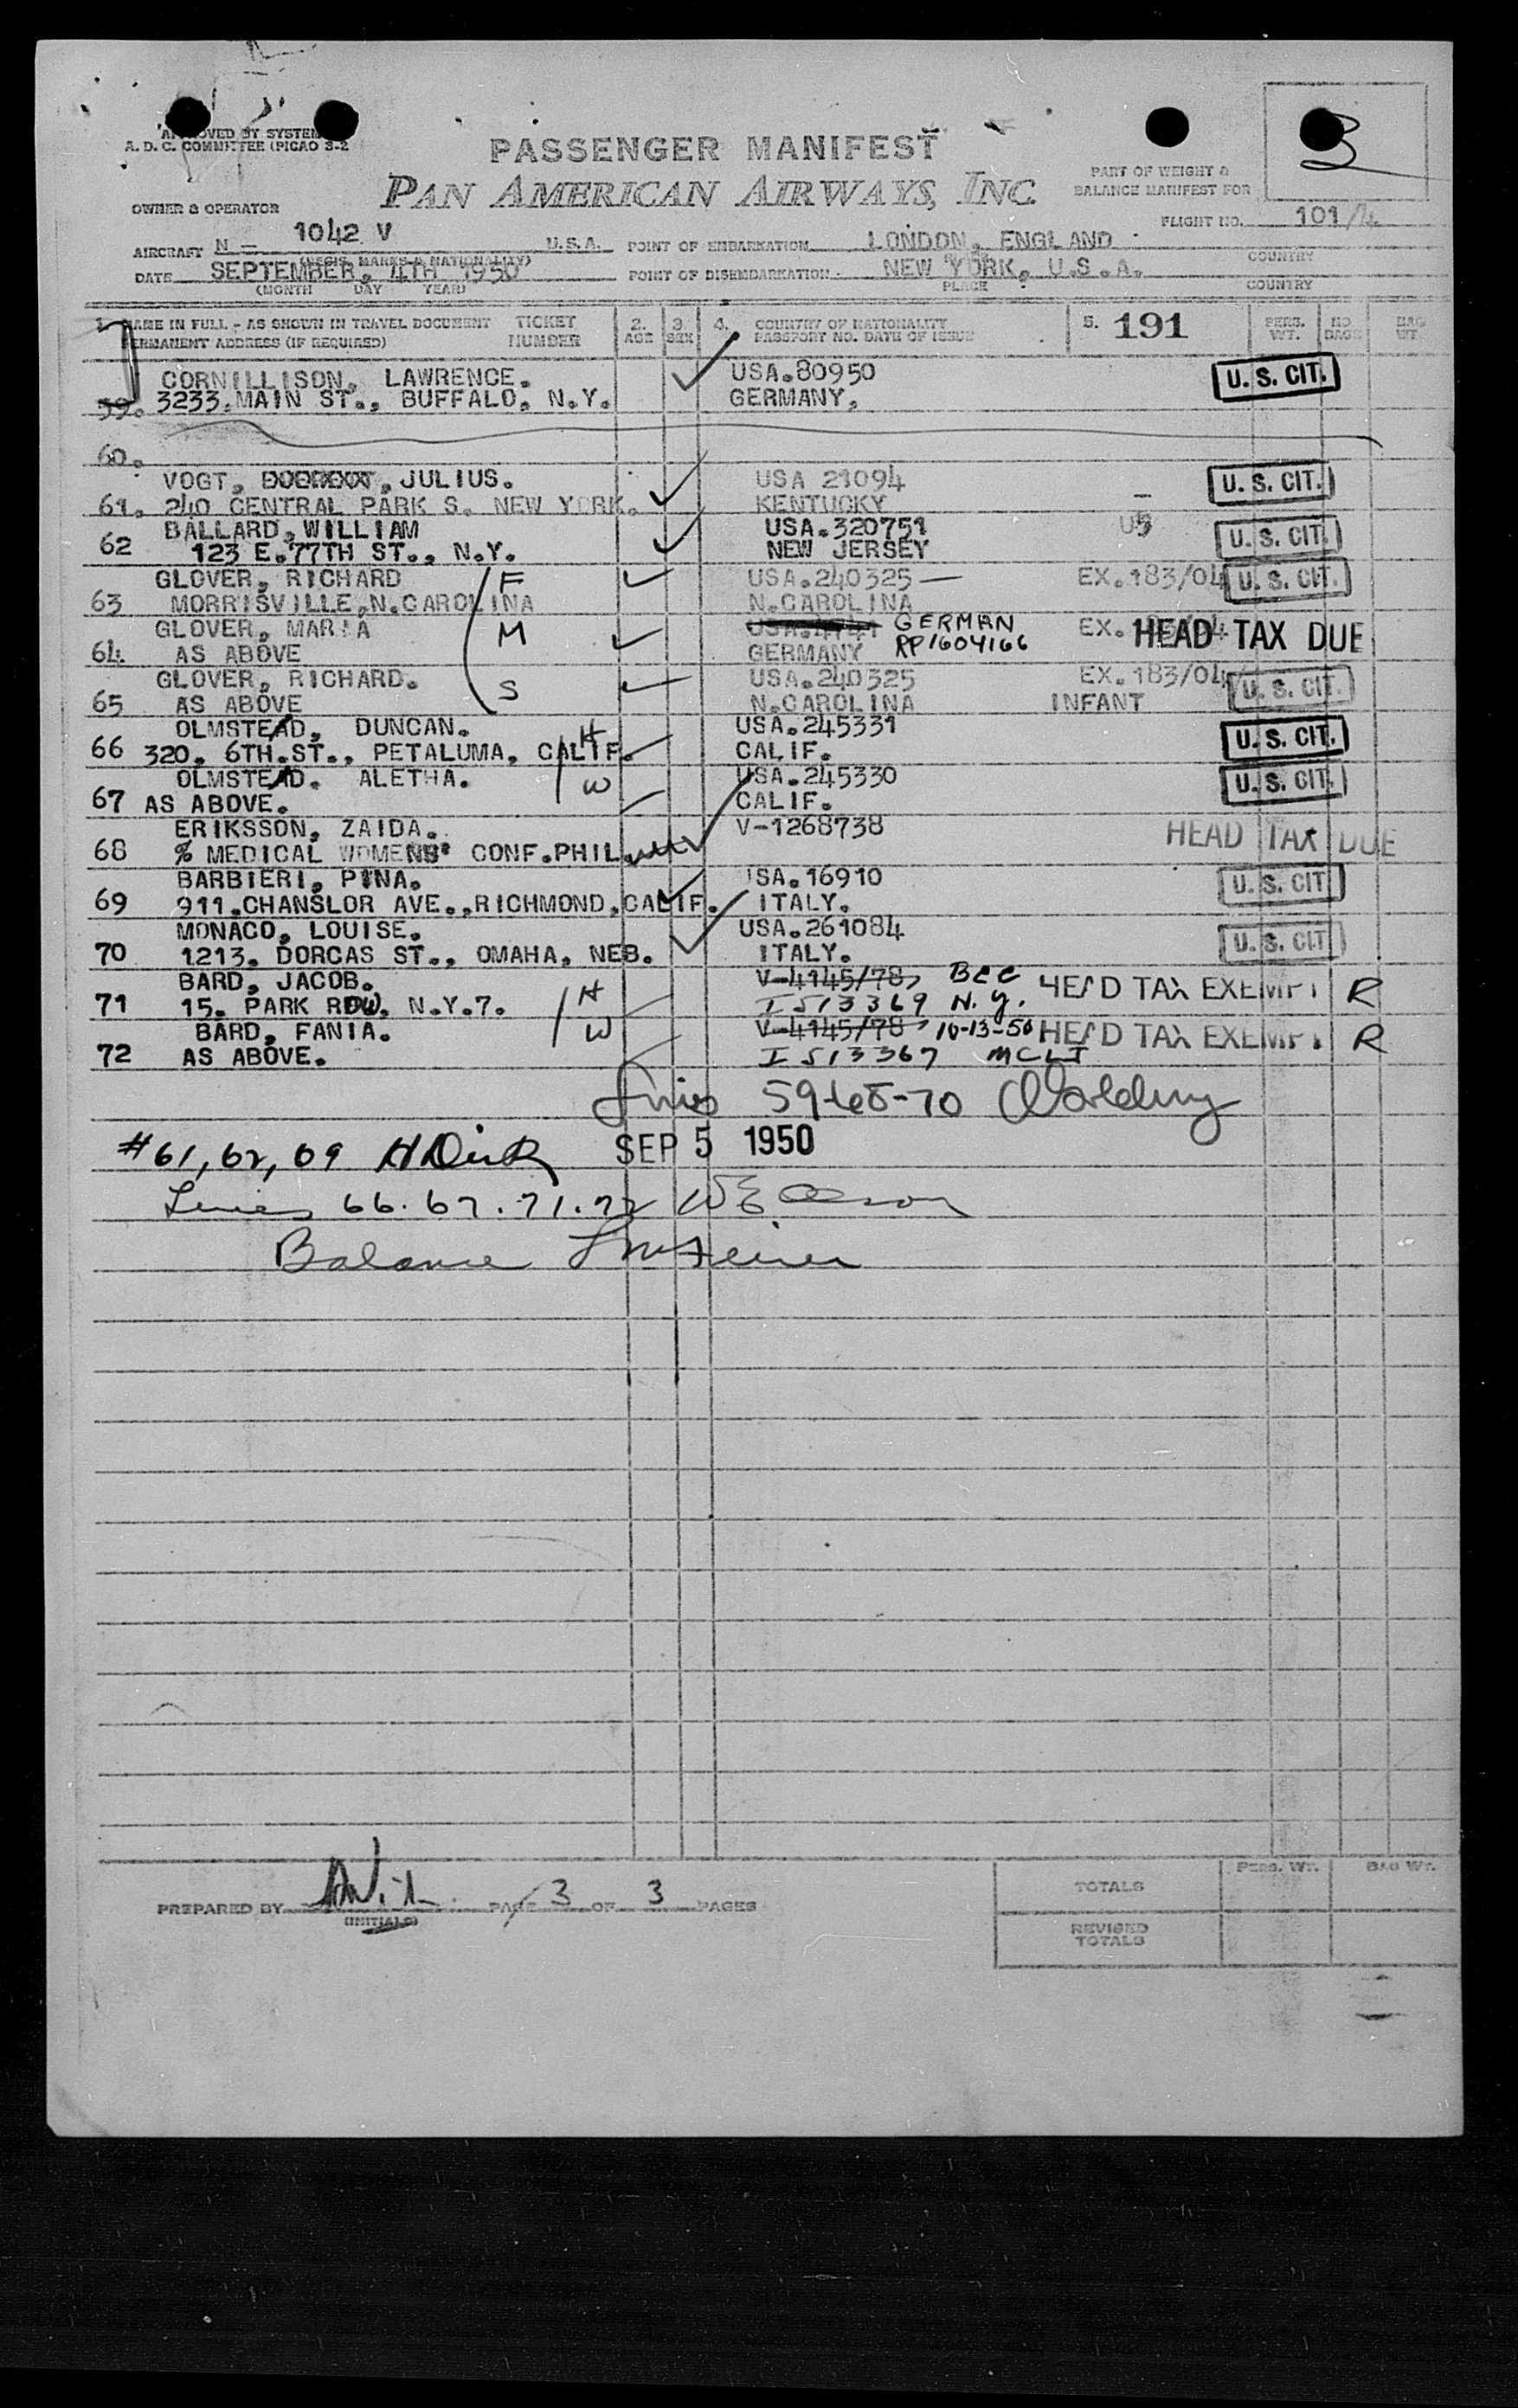 APPROVED BY SYSTEM
A. D. C. COMMITTEE (PICAO 3-2
PASSENGER MANIFEST
PAN AMERICAN AIRWAYS, INC.
PART OF WEIGHT &
BALANCE MANIFEST FOR
3
OWNER & OPERATOR
FLIGHT NO. 101/4
AIRCRAFT N - 1042 V U.S.A. POINT OF EMBARKATION LONDON, ENGLAND
(REGIS. MARKS & NATIONALITY) COUNTRY
DATE SEPTEMBER, 4TH 1950 POINT OF DISEMBARKATION NEW YORK, U.S.A.
(MONTH DAY YEAR) PLACE COUNTRY
1. NAME IN FULL - AS SHOWN IN TRAVEL DOCUMENT TICKET 2. 3. 4. COUNTRY OF NATIONALITY 5. 191 PERS. NO. BAG
PERMANENT ADDRESS (IF REQUIRED) NUMBER AGE SEX PASSPORT NO. DATE OF ISSUE WT. BAGS WT.
CORNILLISON, LAWRENCE. USA.80950 U. S. CIT.
59. 3233.MAIN ST., BUFFALO, N.Y. GERMANY.
60.
VOGT, JULIUS. USA 21094 U. S. CIT.
61. 240 CENTRAL PARK S. NEW YORK. KENTUCKY
BALLARD, WILLIAM USA.320751 U. S. CIT.
62 123 E.77TH ST., N.Y. NEW JERSEY
GLOVER, RICHARD F USA.240325 — EX.183/04 U. S. CIT.
63 MORRISVILLE,N.CAROLINA N.CAROLINA
GLOVER, MARIA M GERMAN EX. HEAD TAX DUE
64. AS ABOVE GERMANY RP1604166
GLOVER, RICHARD. S USA.240325 EX.183/04 U. S. CIT.
65 AS ABOVE N.CAROLINA INFANT
OLMSTEAD, DUNCAN. H USA.245331 U. S. CIT.
66 320. 6TH.ST., PETALUMA, CALIF. CALIF.
OLMSTEAD. ALETHA. W USA.245330 U. S. CIT.
67 AS ABOVE. CALIF.
ERIKSSON, ZAIDA. V-1268738 HEAD TAX DUE
68 % MEDICAL WOMENS' CONF.PHIL.
BARBIERI, PINA. USA.16910 U. S. CIT
69 911.CHANSLOR AVE.,RICHMOND,CALIF. ITALY.
MONACO, LOUISE. USA.261084 U. S. CIT
70 1213. DORCAS ST., OMAHA, NEB. ITALY.
BARD, JACOB. H V-4145/78, BEC HEAD TAX EXEMPT R
71 15. PARK ROW. N.Y.7. I 513369 N.Y.
BARD, FANIA. W V-4145/78 10-13-50 HEAD TAX EXEMPT R
72 AS ABOVE. I 513367
59-68-70
#61, 62, 69 SEP 5 1950
Lines 66. 67. 71. 72
Balance
PREPARED BY PAGE 3 OF 3 PAGES
(INITIALS)
PERS. WT. BAG WT.
TOTALS
REVISED
TOTALS